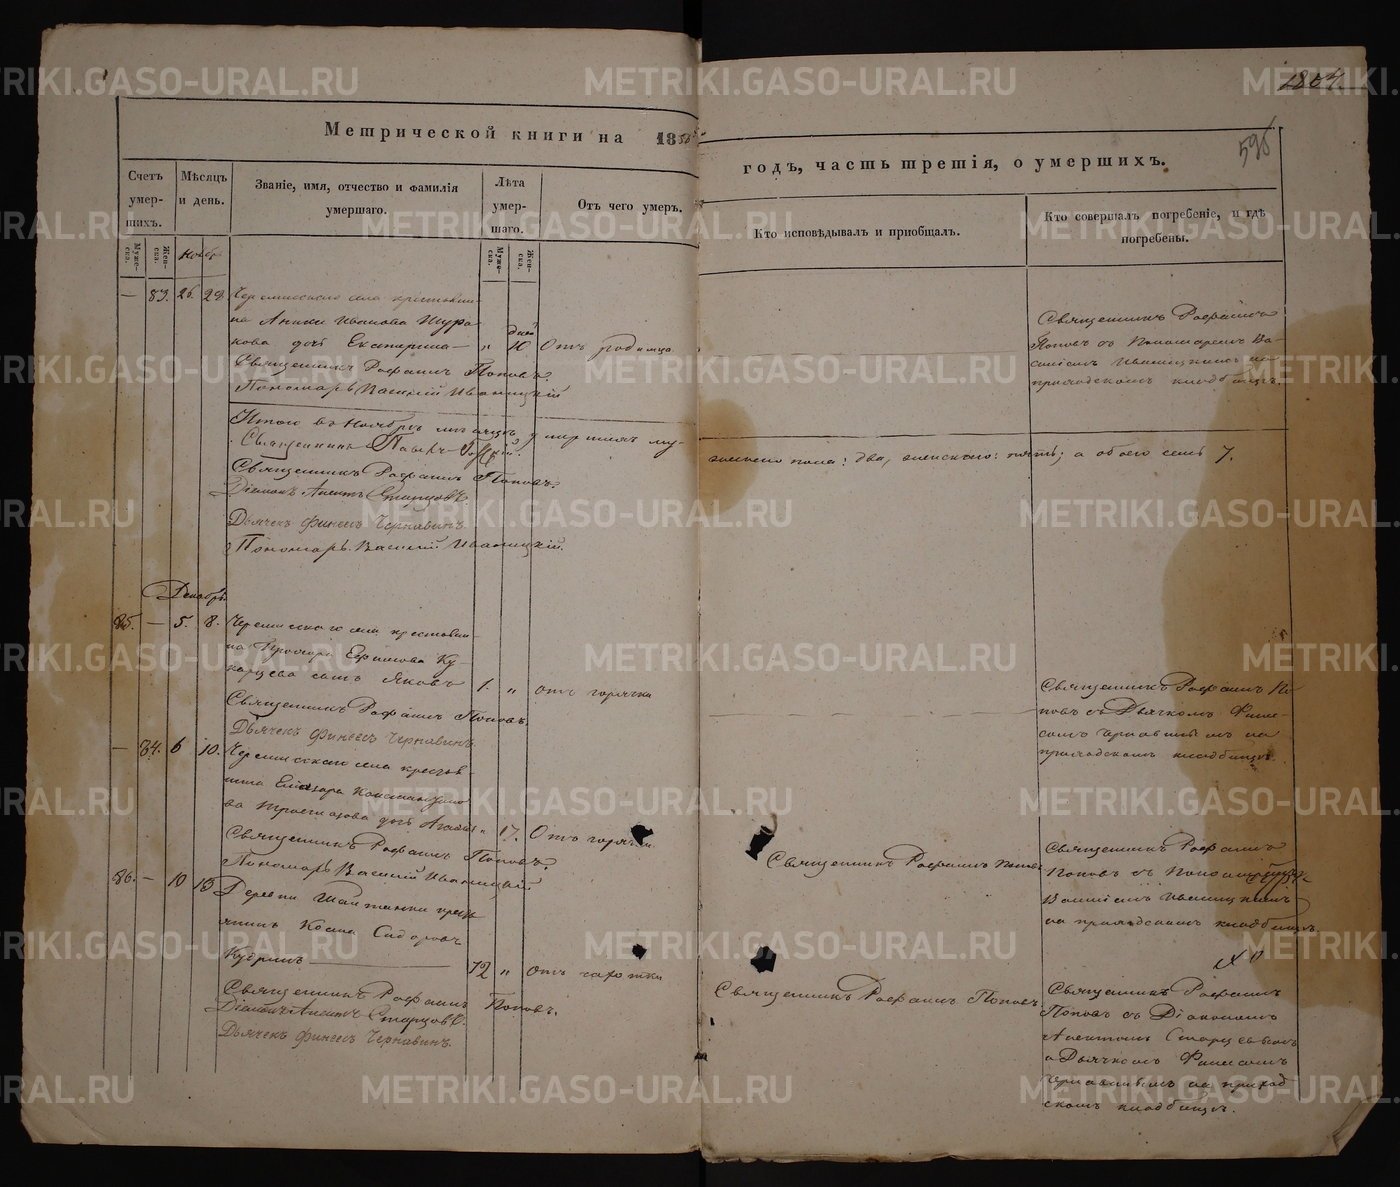 Метрической книги на 185
годъ, часть третія, о умершихъ.
Счетъ умер-шихъ.
Мѣсяцъ и день.
Званіе, имя, отчество и фамилія умершаго.
Лѣта умер-шаго.
Отъ чего умеръ.
Кто исповѣдывалъ и пріобщалъ.
Кто совершалъ погребеніе, и гдѣ погребены.
Муже-ска.
Жен-ска.
Муже-ска.
Жен-ска.
Ноябр
— 83. 26. 29. Черемисскаго села крестьяни-
на Аники Иванова
кова дочь Екатерина — " 10 дней Отъ родимца
Священникъ Рафаилъ Поповъ.
Пономарь Василій Иваницкій
Священникъ Рафаилъ
Поповъ съ Пономаремъ Ва-
силіемъ Иваницкимъ на
приходскомъ кладбищѣ.
Итого въ Ноябрѣ мѣсяцѣ умершихъ му-
жескаго пола: два, женскаго: пять; а обоего семь 7.
Священникъ Павелъ
Священникъ Рафаилъ Поповъ.
Діаконъ Старцовъ.
Дьячекъ Финеесъ Чернавинъ.
Пономарь Василій Иваницкій.
Декабрь
85. — 5. 8. Черемисскаго села крестьяни-
на Ефимова Ку-
сынъ Яковъ 1. " отъ горячки
Священникъ Рафаилъ Поповъ.
Дьячекъ Финеесъ Чернавинъ.
Священникъ Рафаилъ По-
повъ съ Дьячкомъ Фине-
сомъ Чернавинымъ на
приходскомъ кладбищѣ.
— 84. 6 10. Черемисскаго села крестья-
нина Елеазара Константино-
ва дочь " 17. Отъ горячки
Священникъ Рафаилъ Поповъ.
Пономарь Василій Иваницкій
Священникъ Рафаилъ Поповъ
Священникъ Рафаилъ
Поповъ съ Пономаремъ
Василіемъ Иваницкимъ
на приходскомъ кладбищѣ.
86. — 10 13 Деревни Шайтанки крестья-
нинъ Косма Сидоровъ
Кудринъ — 72 " отъ чахотки
Священникъ Рафаилъ Поповъ.
Діаконъ Старцовъ.
Дьячекъ Финеесъ Чернавинъ.
Священникъ Рафаилъ Поповъ
Священникъ Рафаилъ
Поповъ съ Діакономъ
Старцовымъ
и Дьячкомъ Финесомъ
Чернавинымъ на приход-
скомъ кладбищѣ.
METRIKI.GASO-URAL.RU